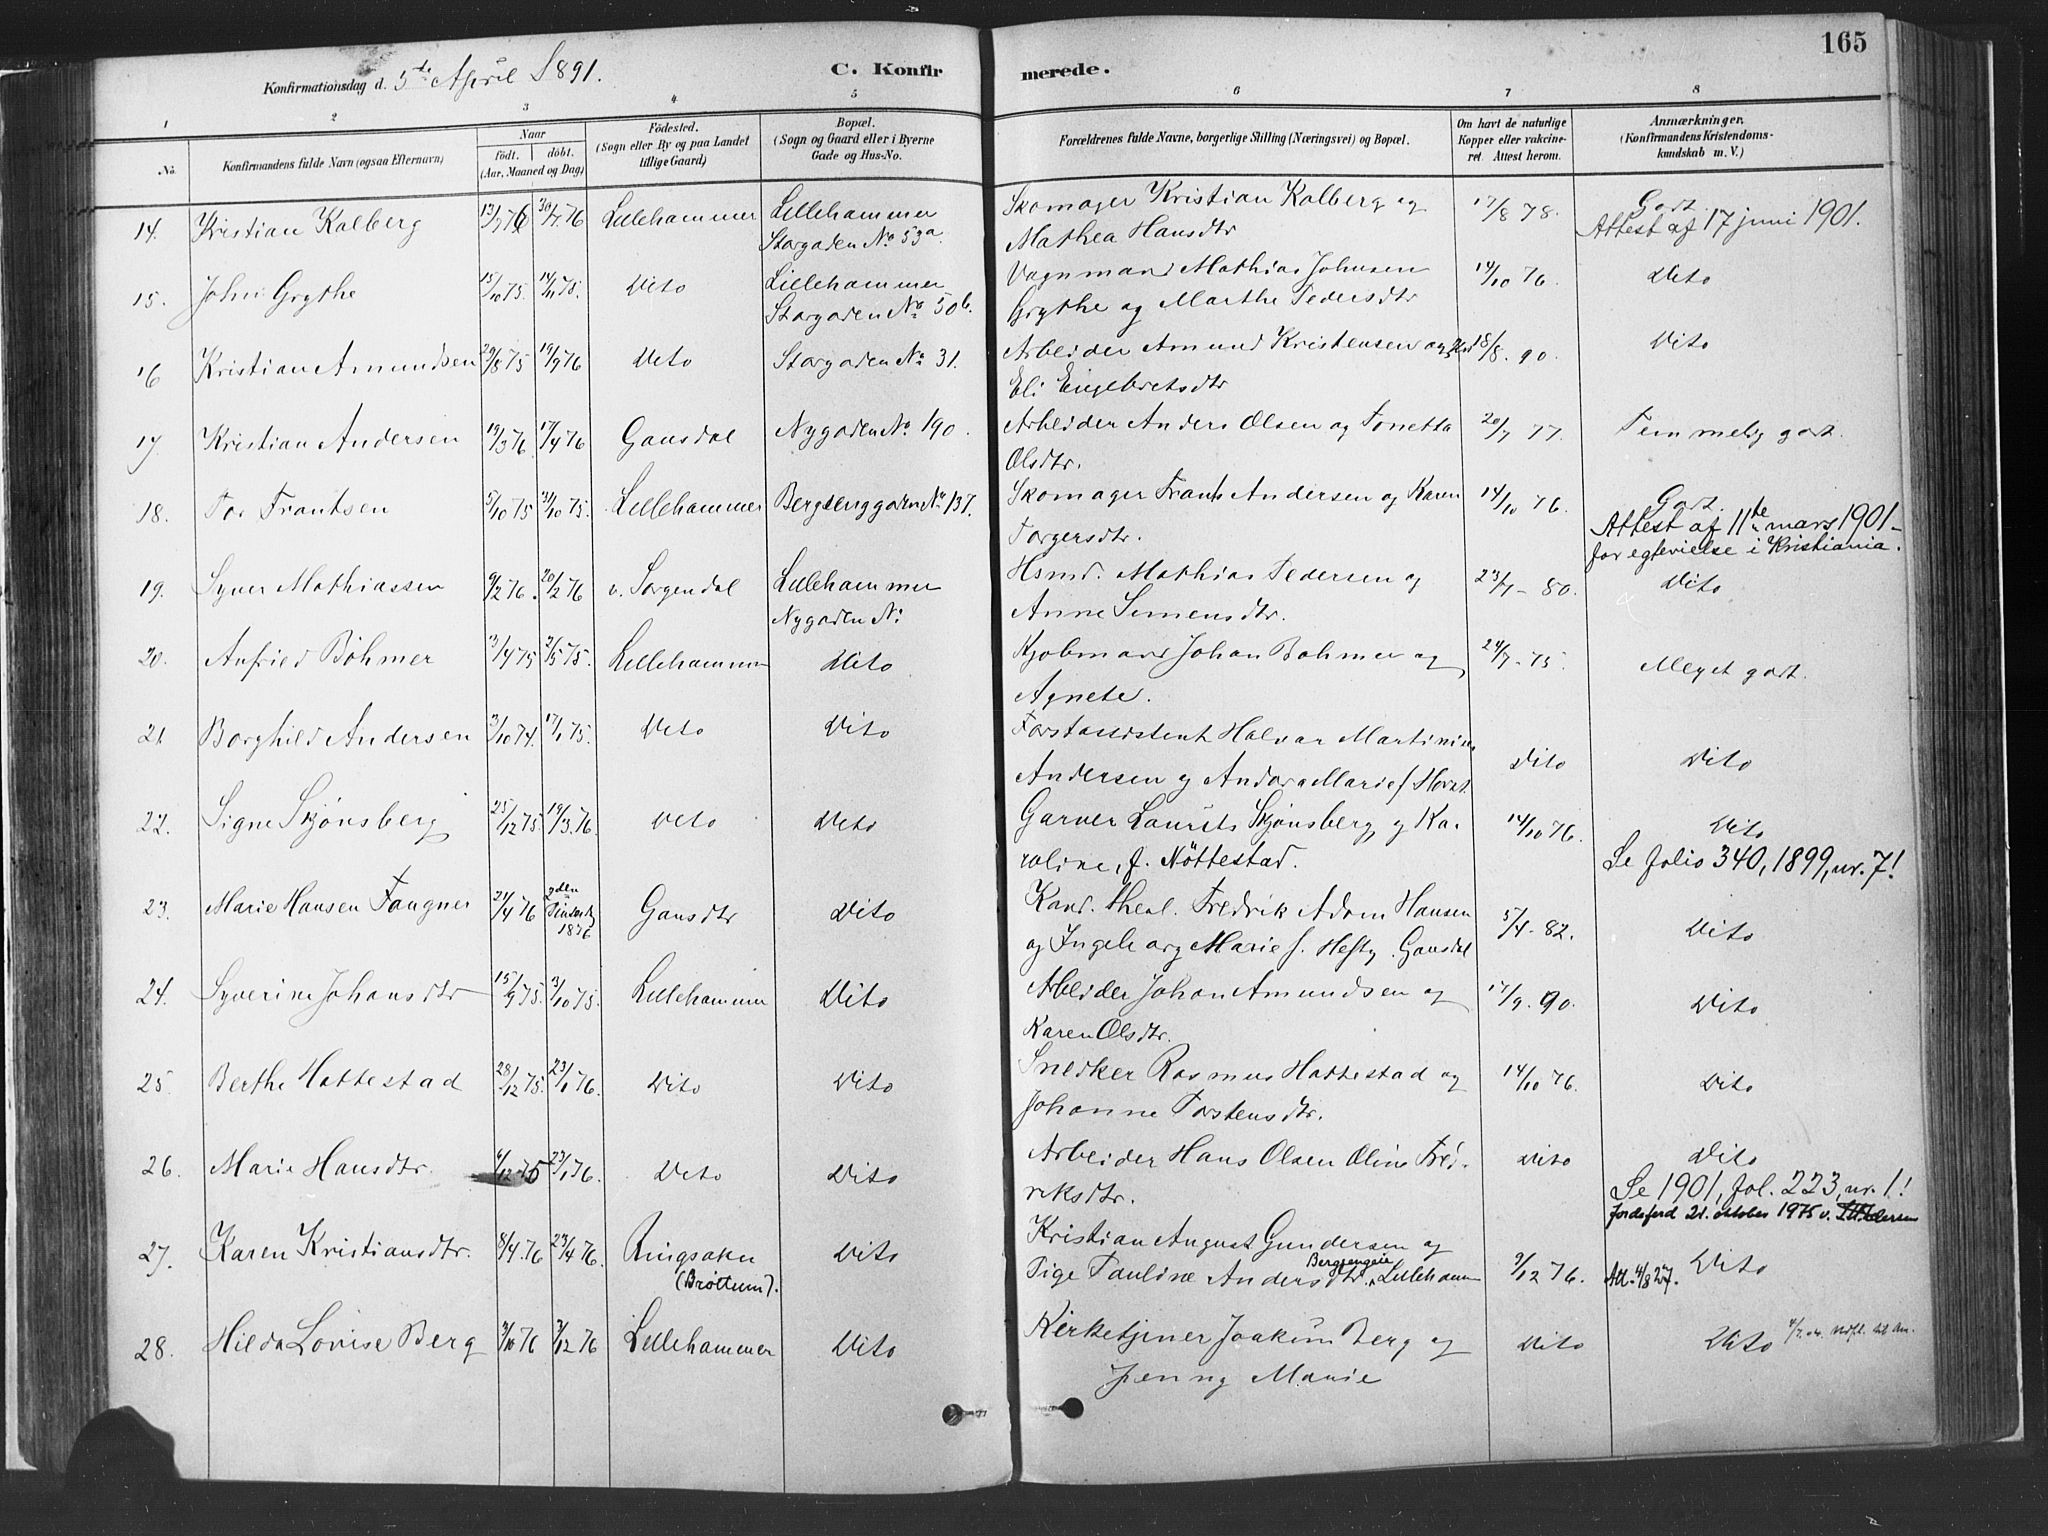 165
Konfirmationsdag d. 5te April 1891.
C. Konfir
merede.
1 2 3 4 5 6 7 8
No.
Konfirmandens fulde Navn (ogsaa Efternavn)
Naar
født. døbt.
(Aar, Maaned og Dag)
Fødested.
(Sogn eller By og paa Landet
tillige Gaard)
Bopæl.
(Sogn og Gaard eller i Byerne
Gade og Hus-No.
Forældrenes fulde Navne, borgerlige Stilling (Næringsvei) og Bopæl.
Om havt de naturlige
Kopper eller vakcine-
ret. Attest herom.
Anmærkninger.
(Konfirmandens Kristendoms-
kundskab m. V.)
14. Kristian Kalberg 13/7 76 30/7 76 Lillehammer Lillehammer Skomager Kristian Kalberg og 17/8 78. Godt.
Storgaden No 53a. Mathea Hansdtr Attest af 17 juni 1901.
15. John Grythe 15/10 75. 14/11 75. Dito Lillehammer Vognmand Mathias Johnsen 14/10 76. Dito
Storgaden No 50b. Grythe og Marthe Pedersdtr
16 Kristian Amundsen 29/8 75 19/9 76 Dito Storgaden No 31. Arbeider Amund Kristensen og 18/8. 90. Dito
Eli Engebretsdtr
17 Kristian Andersen 19/3 76. 17/4 76 Gausdal Nygaden No 190. Arbeider Anders Olsen og Tonetta 20/7 77. Temmelig godt.
Olsdtr.
18. Tor Frantsen 5/10 75 31/10 75. Lillehammer Bergsenggaden No 137. Skomager Frants Andersen og Karen 14/10 76. Godt.
Torgersdtr. Attest af 11te mars 1901 -
for egtevielse i Kristiania.
19. Syver Mathiassen 9/2 76. 20/2 76 v. Torgendal Lillehammer Hsmd. Mathias Pedersen og 23/7 - 80. Dito
Nygaden No: Anne Simensdtr.
20. Anfried Böhmer 13/4 75 2/5 75. Lillehammer Dito Kjøbmand Johan Bøhmer og 24/7 - 75. Meget godt.
Agnete.
21. Borghild Andersen 3/10 74. 17/1 75. Dito Dito Forstassistent Halvar Martinius Dito Dito
Andersen og Andora Marie f Horst
22. Signe Skjønsberg 25/12 75. 19/3. 76. Dito Dito Garver Laurits Skjønsberg, og Ka- 14/10 76. Dito
roline, f. Nøttestad. Se folio 340, 1899, nr. 7!
23. Marie Hansen Faugner 21/4 76 2den Pinsedag 1876 Gausdtr Dito Kand. theol. Fredrik Adam Hansen 5/4 - 82. Dito
og Ingeborg Marie f. Hefty. Gausdal
24. Syverine Johansdtr 15/9 75. 3/10 75. Lillehammer Dito Arbeider Johan Amundsen og 17/9. 90. Dito
Karen Olsdtr.
25. Berthe Hattestad 28/12 75. 23/1 76. Dito Dito Snedker Rasmus Hattestad og 14/10 76. Dito
Johanne Torstensdtr.
26. Marie Hansdtr. 4/12 75 23/1 76. Dito Dito Arbeider Hans Olsen Oline Fred- Dito Dito
riksdtr. Se 1901, fol. 223, nr. 1!
Jordeferd 21. oktober 1975 v.
27. Karen Kristiansdtr. 8/4. 76 23/4 76. Ringsaker Dito Kristian August Gundersen og
(Brøttum). Pige Pauline Andersdtr. Bergsengeie, Lilleham 3/12 76. Att. 4/8 27. Dito
28. Hilda Lovise Berg 3/10 76 3/12 76 Lillehammer Dito Kirketjener Joakim Berg og Dito Dito
Jenny Marie